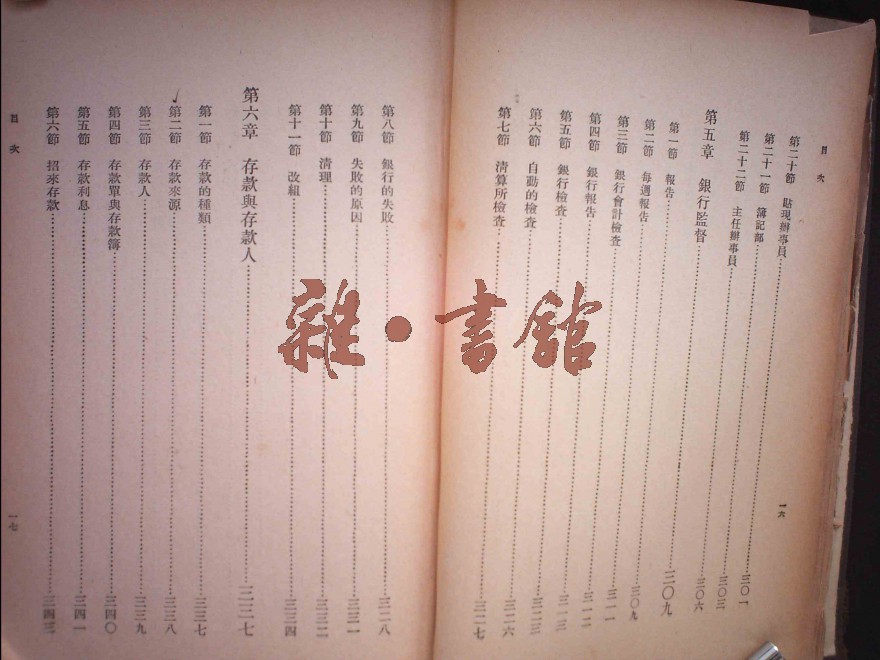 目次
一六
第二十節 貼現辦事員……三〇一
第二十一節 簿記部……三〇三
第二十二節 主任辦事員……三〇六
第五章 銀行監督……三〇九
第一節 報告……三〇九
第二節 每週報告……三一一
第三節 銀行會計檢查……三一二
第四節 銀行報告……三一三
第五節 銀行檢查……三二三
第六節 自動的檢查……三二六
第七節 清算所檢查……三二七
第八節 銀行的失敗……三二八
第九節 失敗的原因……三三一
第十節 清理……三三二
第十一節 改組……三三四
第六章 存款與存款人……三三七
第一節 存款的種類……三三七
第二節 存款來源……三三八
第三節 存款人……三三九
第四節 存款單與存款簿……三四〇
第五節 存款利息……三四一
第六節 招來存款……三四三
目次
一七
雜·書館